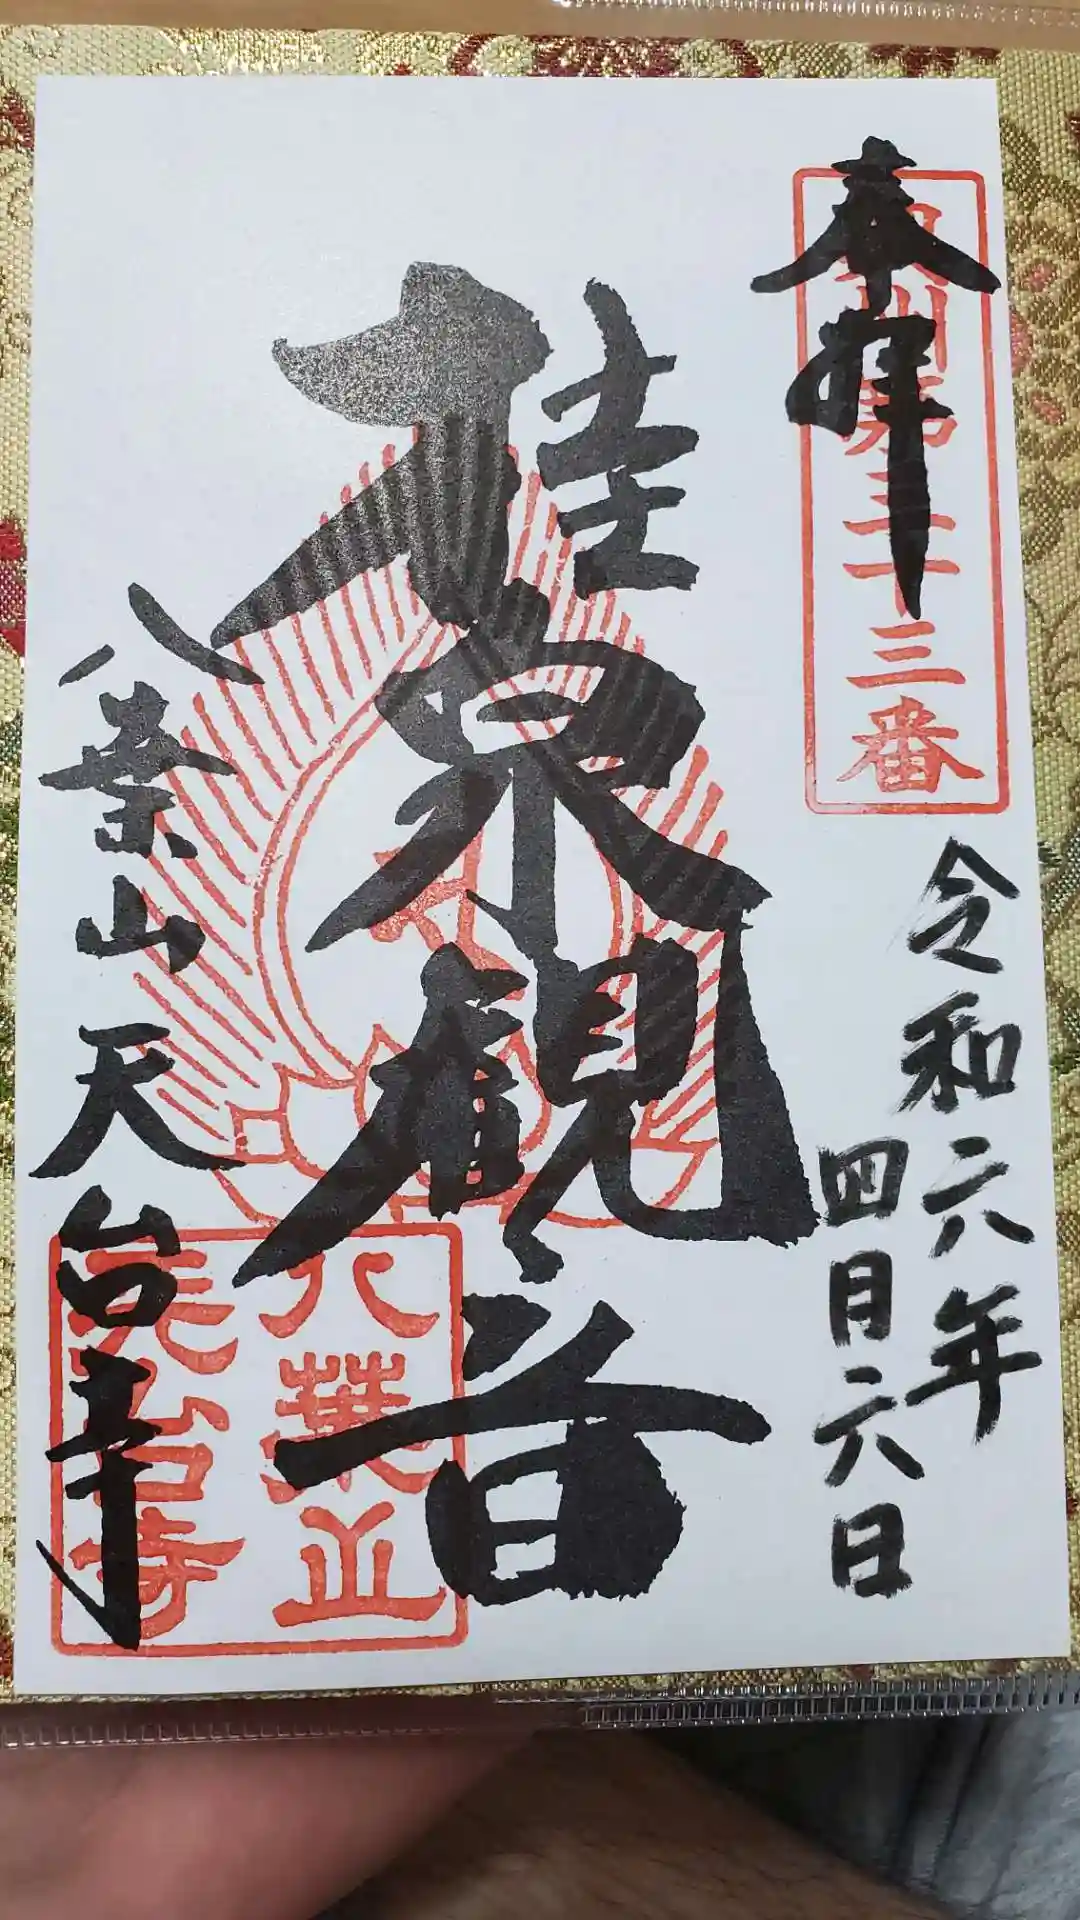 奉拝
奥州第三十三番
令和六年
四月六日
桂泉観音
八葉山天台寺
八葉山
天台寺